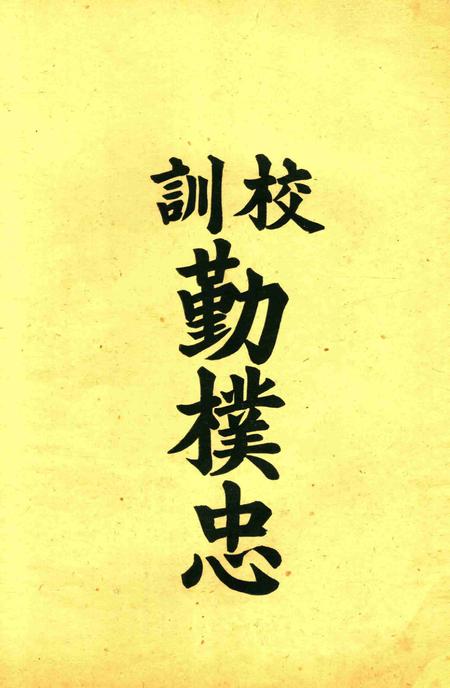 校訓
勤樸忠